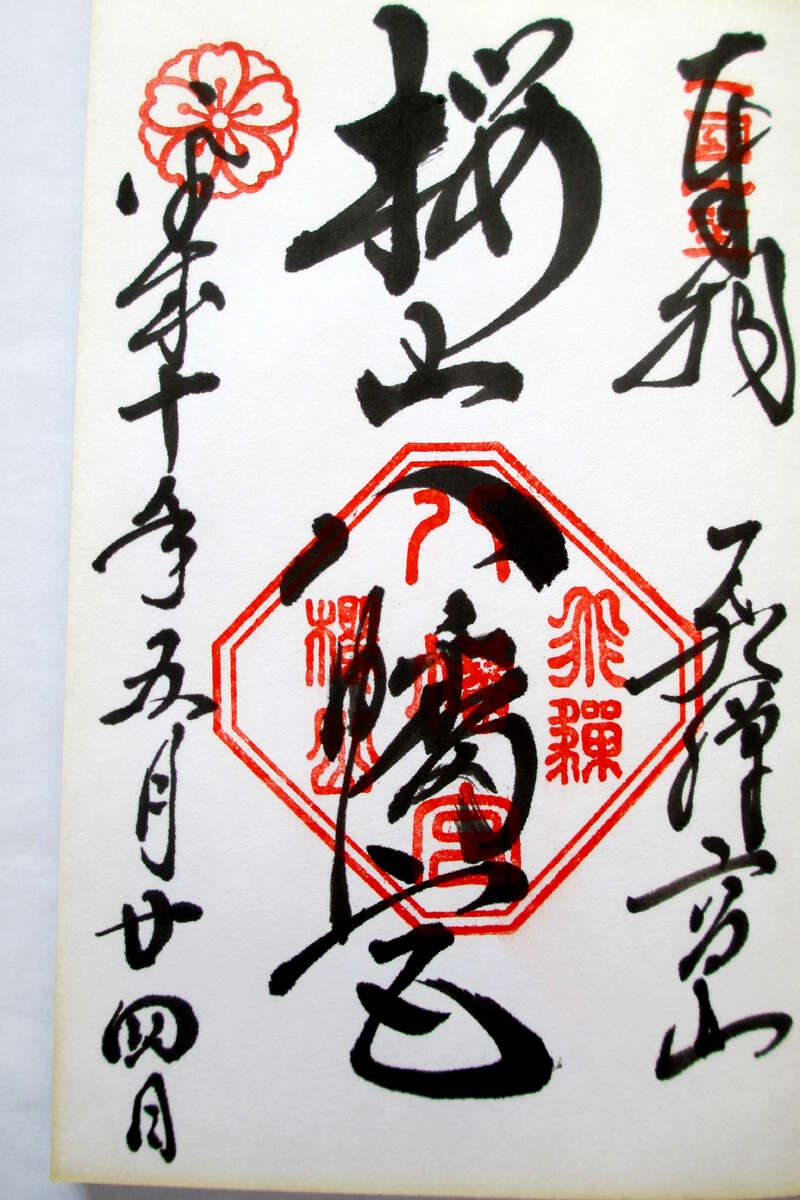 奉拝
飛騨高山
桜山
八幡宮
飛驒
八幡宮
櫻山
平成十年五月廿四日